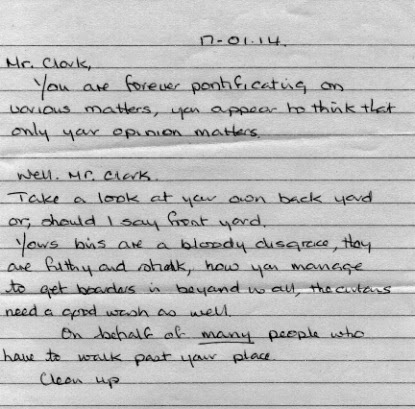 17-01.14.
Mr. Clark,
You are forever pontificating on
various matters, you appear to think that
only your opinion matters.
Well. Mr. Clark.
Take a look at your own back yard
or, should I say front yard.
Yours bins are a bloody disgrace, they
are filthy and stink, how you manage
to get boarders in beyond us all, the curtains
need a good wash as well.
On behalf of many people who
have to walk past your place.
Clean up